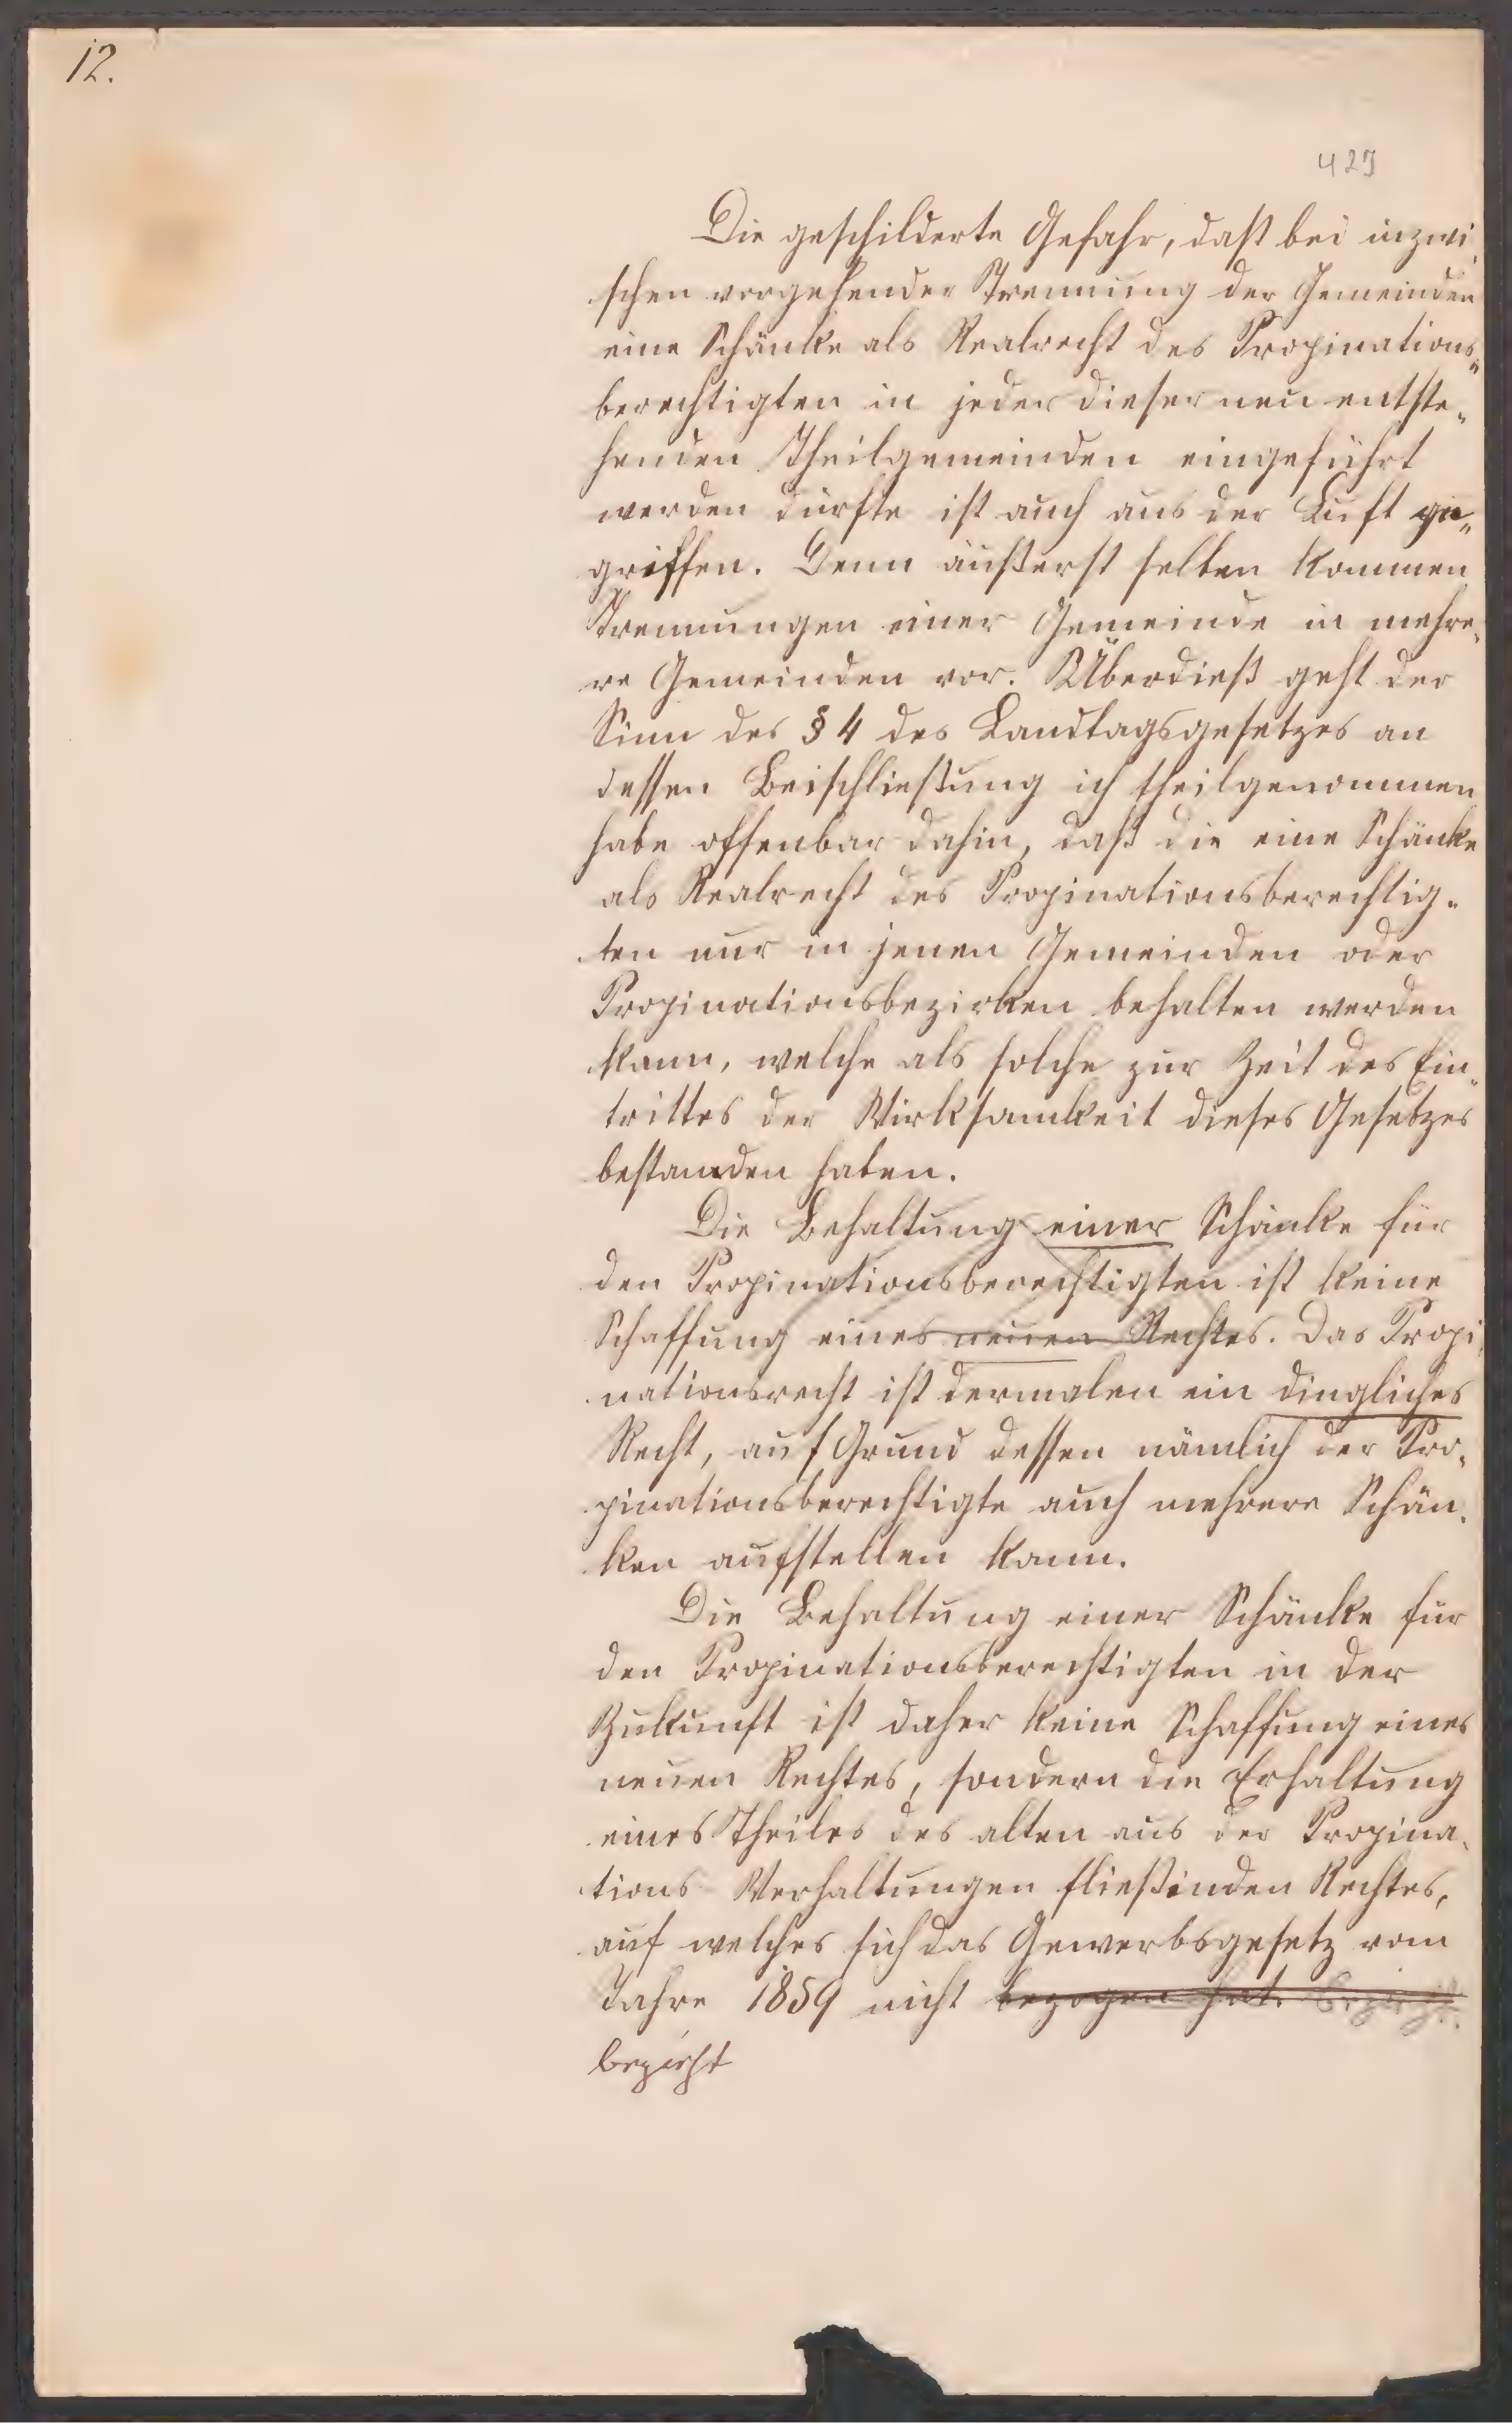 12.
429
Die geschilderte Gefahr, daß bei inzwi
schen vorgehender Trennung der Gemeinden
eine Schänke als Realrecht des Propinations„
berechtigten in jeder dieser neu entste„
henden Theilgemeinden eingeführt
werden dürfte ist auch aus der Luft ge„
griffen. Denn äußerst selten kommen
Trennungen einer Gemeinde in mehre„
re Gemeinden vor. Überdieß geht der
Sinn des § 4 des Landtagsgesetzes an
dessen Beischließung ich theilgenommen
habe offenbar dahin, daß die eine Schänke
als Realrecht des Propinationsberechtig„
ten nur in jenen Gemeinden oder
Propinationsbezirken behalten werden
kann, welche als solche zur Zeit des Ein„
trittes der Wirksamkeit dieses Gesetzes
bestanden haben.
Die Behaltung einer Schänke für
den Propinationsberechtigten ist keine
Schaffung eines neuen Rechtes. Das Propi
nationsrecht ist dermalen ein dingliches
Recht, auf Grund dessen nämlich der Pro„
pinationsberechtigte auch mehrere Schän„
ken aufstellen kann.
Die Behaltung einer Schänke für
den Propinationsberechtigten in der
Zukunft ist daher keine Schaffung eines
neuen Rechtes, sondern die Erhaltung
eines Theiles des alten aus der Propina„
tions Verhaltungen fließinden Rechtes,
auf welches sich das Gewerbsgesetz vom
Jahre 1859 nicht bezogen hat. bezieht.
bezieht